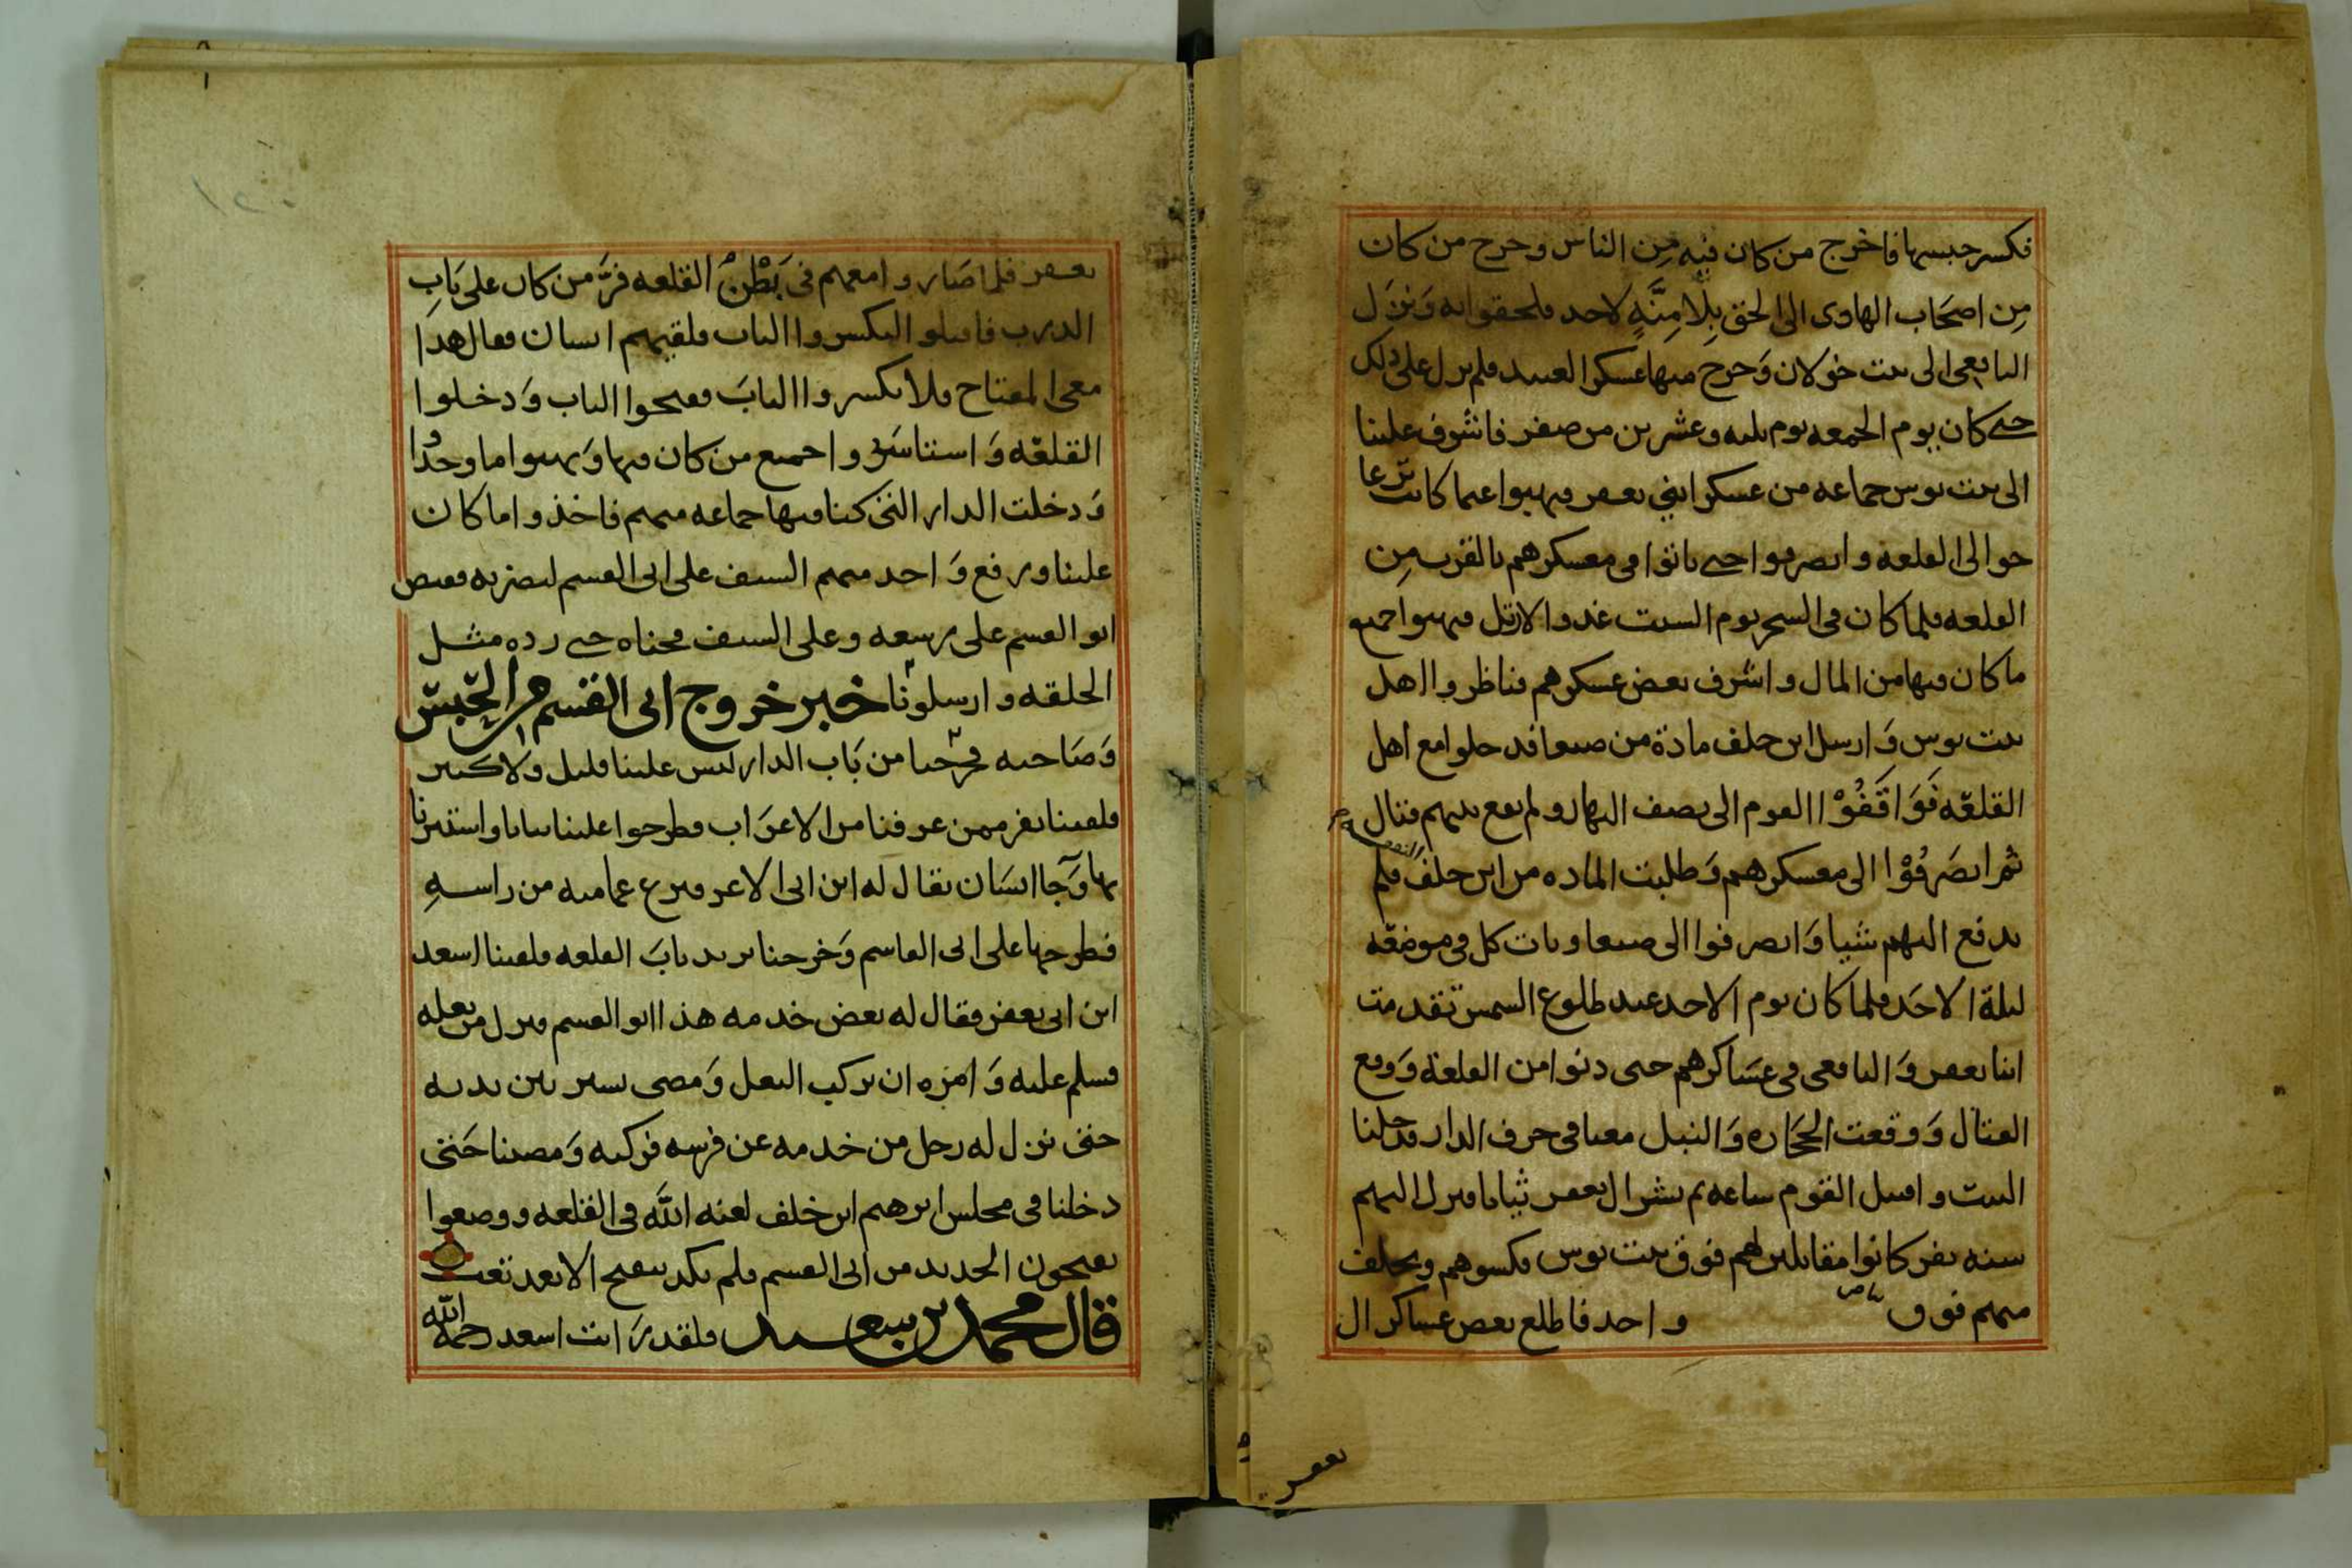 فكسر حبسها فاخرج من كان فيه من الناس وخرج من كان
مِن اصحَاب الهادى الى الحق بِلا مِنَّهٍ لاحد فلحقوا به وَنزل
اليافعى الى بيت خولان وَخرج منها عسكر العبيد فلم يزل على ذلك
حتى كان يوم الجمعه يوم ثلثه وعشرين من صفر فاشرف علينا
الى بيت بوس جماعه من عسكر ابني يعفر فنهبوا غنما كانت ترعا
حوالى القلعه وانصرفوا حتى باتوا فى معسكرهم بالقرب مِن
القلعه فلما كان فى السحر يوم السبت غدوا فنهبوا جميع
ما كان فيها من المال واشرف بعض عسكرهم فناظروا اهل
بيت بوس وَارسل ابن خلف مادة من صنعا فدخلوا مع اهل
القلعه فَوَاقَفُوْا القوم الى نصف النهار ولم يقع بينهم قتال
ثم انصَرفُوْا الى معسكرهم وَطلبت الماده من ابن خلف فلم
يدفع اليهم شيا وَانصرفوا الى صنعا وبات كل فى موضعه
ليلة الاحَد فلما كان يوم الاحد عند طلوع الشمس تقدمت
ابنا يعفر وَاليافعى فى عسَاكرهم حتى دنوا من القلعة وَوقع
القتال وَوقعت الحجَاره وَالنبل معنا فى حرف الدار فدخلنا
البيت واقتتل القوم ساعه ثم نشر ال يعفر ثيابا فنزل اليهم
سته نفر كانوا مقابلين لهم فوق بيت بوس فكسوهم وتخلف
منهم فوق واحد فاطلع بعض عساكر ال
يعفر
يعفر فلما صَاروا معهم فى بَطْنِ القلعه فرَّ من كان على بَابِ
الدرب فاقبلوا ليكسروا الباب فلقيهم انسان فقال هذا
معى المفتاح فلا تكسروا البابَ ففتحوا الباب وَدخلوا
القلعَه وَاستاسَروا جميع من كان فيها وَنهبوا ما وجدُوا
وَدخلت الدار التى كنا فيها جماعه منهم فاخذوا ما كان
علينا ورفع وَاحد منهم السيف على ابى القسم ليضربه فقبض
ابو القسم على وعلى السيف فحناه حتى رده مثل
الحلقه وارسلونا خبر خروج ابى القسم من الحَبسّ
وَصَاحبه فخرجنا من بَاب الدار ليس علينا قليل ولا كثير
فلقينا نفر ممن عرفنا من الاعرَاب فطرحوا علينا ثيابا واستترنا
بها وَجَا انسَان يقال له ابن ابى الاعر فنزع عمامته من راسهِ
فطرحها على ابى القاسم وَخرجنا نريد بابَ القلعه فلقينا اسعد
ابن ابى يعفر فقال له بعض خدمه هذا ابو القسم فنزل من بغله
فسلم عليه وَامره ان يركب البغل وَمضى يسير بين يديه
حتى نزل له رجل من خدمه عن فرسه فركبه وَمضينا حَتى
دخلنا فى مجلس ابرهيم ابن خلف لعنه اللَّه فى القلعه ووضعوا
يفتحون الحديد من ابى القسم فلم يكد ينفتح الا بعد تعب
قال محمد بن سعيد ولقد رَايت اسعد رحمه الله